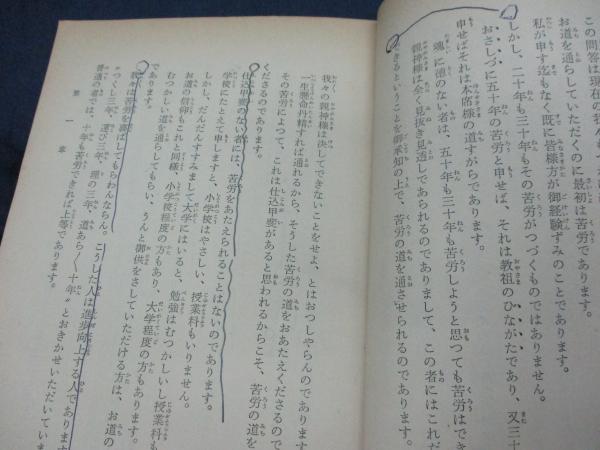 この問答は現在の我
お道を通らしていただくのに最初は苦労
私が申す迄もなく既に皆様方が御経験ずみのことであります。
しかし、二十年も三十年もその苦労がつづくものではありません。
おさしづに五十年の苦労と申せば、それは教祖のひながたであり、又三十
申せばそれは本席様の道すがらであります。
魂に徳のない者は、五十年も三十年も苦労しようと思つても苦労はでき
親神様は全く見抜き見透しであられるのでありまして、この者にはこれだ
できるということを御承知の上で、苦労の道を通させられるのであります。
我々の親神様は決してできないことをせよ、とはおつしやらんのであります
一生懸命丹精すれば通れるから、そうした苦労の道をおあたえくださるので
その苦労によつて、これは仕込甲斐があると思われるからこそ、苦労の道を
くださるのであります。
仕込甲斐のない者には、苦労をあたえられることはないのであります。
学校にたとえて申しますと、小学校はやさしい、授業料もいりません。
しかし、だんだんすすみまして大学にはいると、勉強はむつかしいし授業料も
お道の信仰もこれと同様、小学校程度の方もあり、大学程度の方もあります。
むつかしい道を通してもらい、うんと御供をさしていただける方は、お道の
であります。
我々は苦労を喜ばしてもらわんならん。こうした人は進歩向上する人であります
"つくし三年、運び三年、理の三年、道あら〱十年"とおきかせいただいていま
普通の者では、十年も苦労できれば上等であります。
第一章